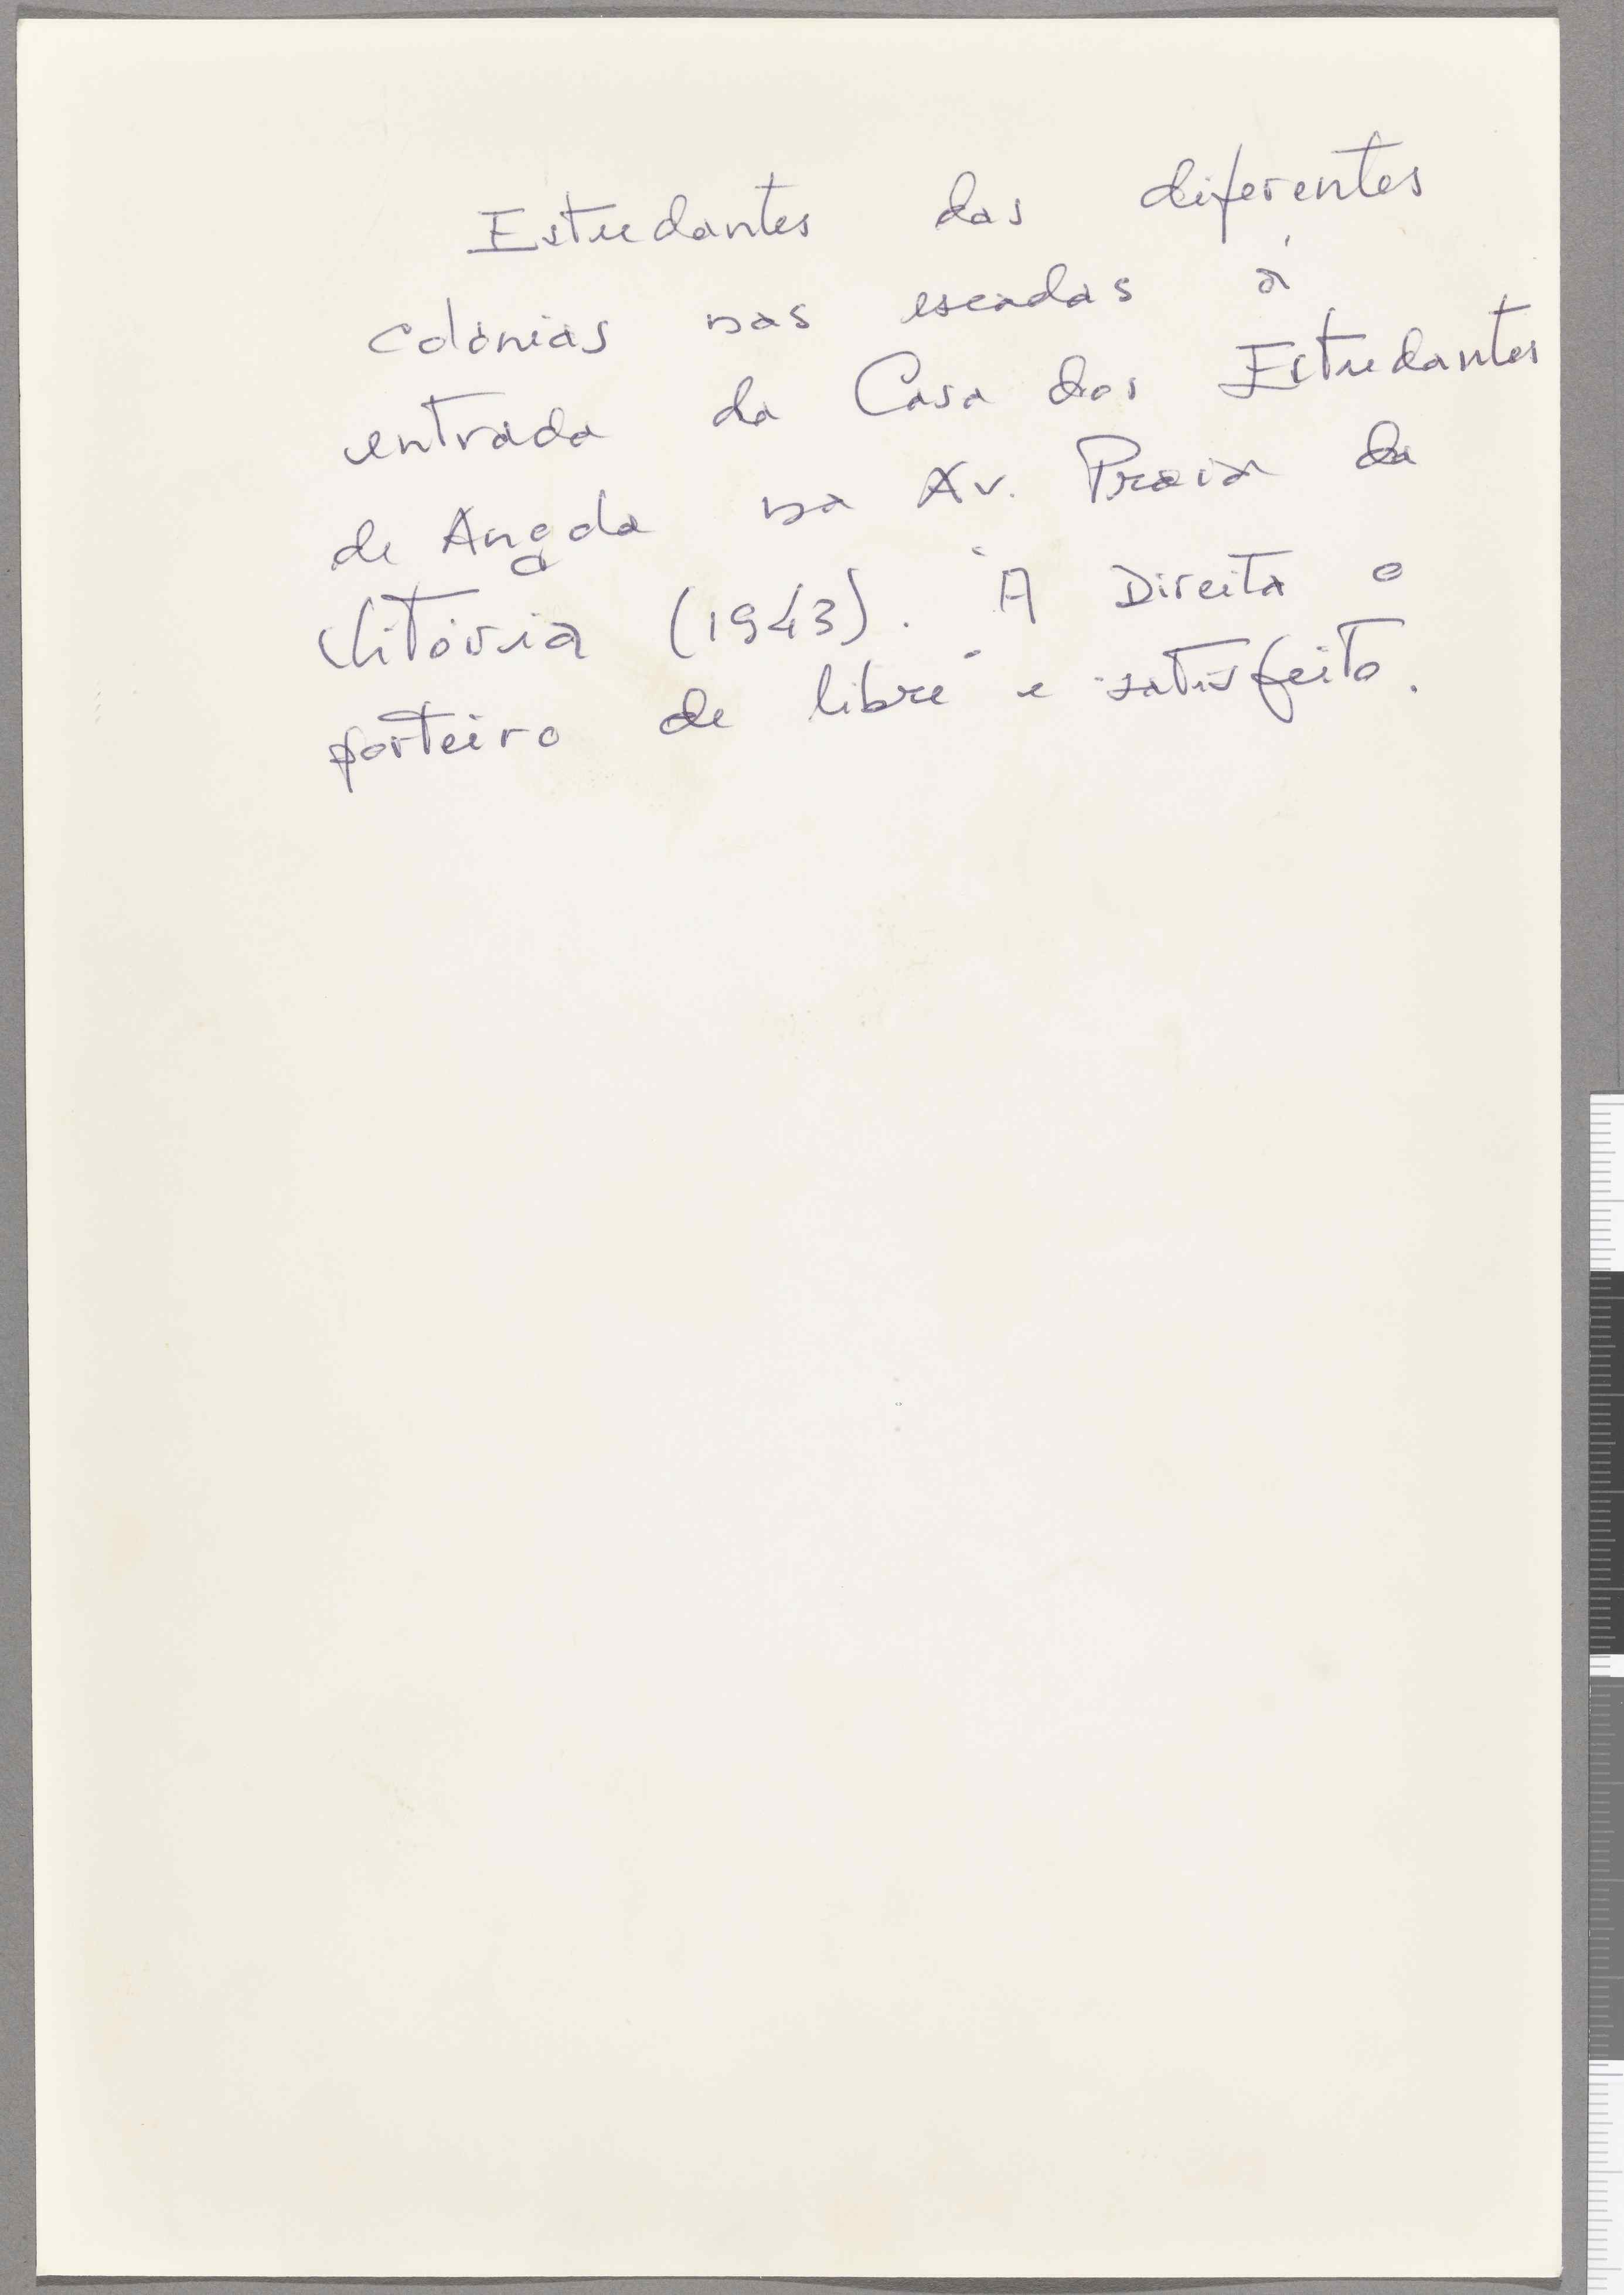 Estudantes das diferentes
colónias nas escadas à
entrada da Casa dos Estudantes
de Angola na Av. Praia da
Vitória (1943). À Direita o
porteiro de libré e satisfeito.